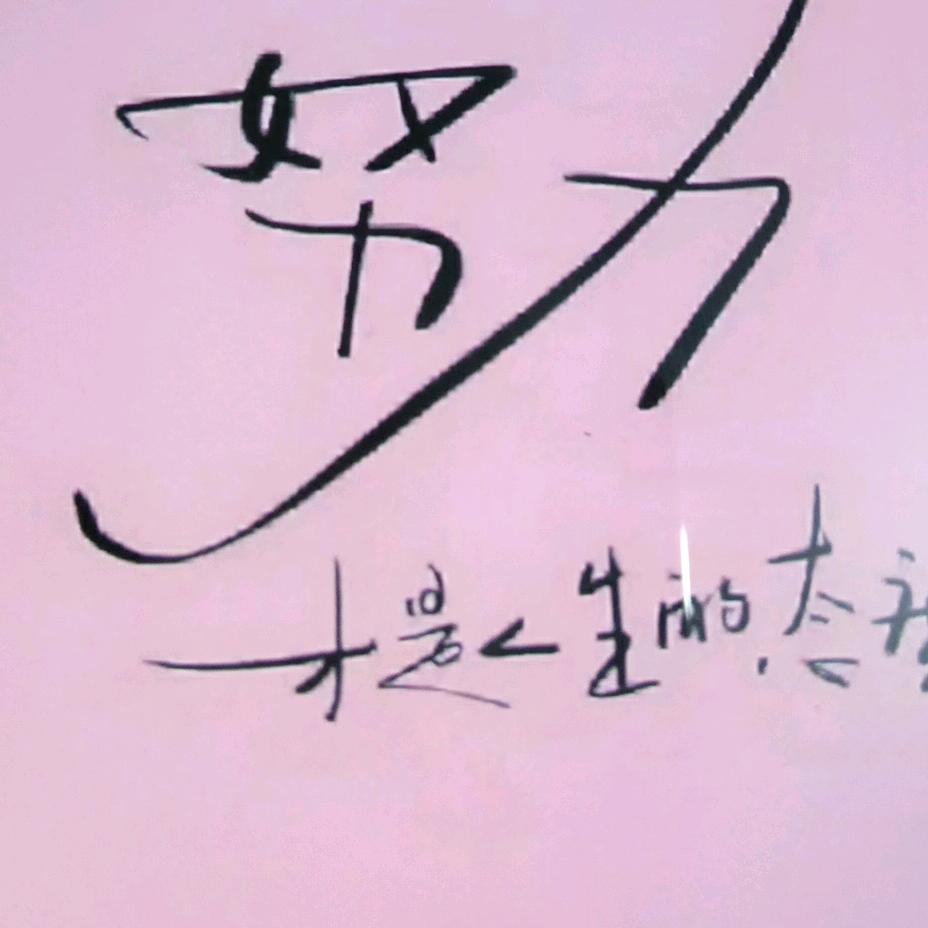 努力
才是人生的态